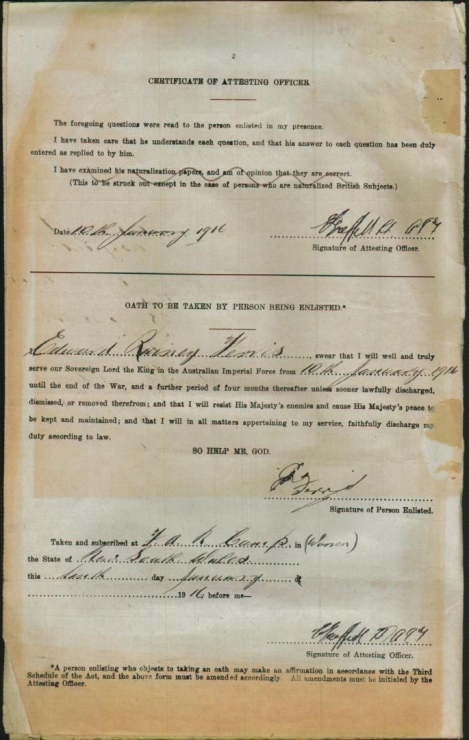 2
CERTIFICATE OF ATTESTING OFFICER.
The foregoing questions were read to the person enlisted in my presence.
I have taken care that he understands each question, and that his answer to each question has been duly
entered as replied to by him.
I have examined his naturalization papers, and am of opinion that they are correct.
(This to be struck out except in the case of persons who are naturalized British Subjects.)
Date 10th January 1916
Signature of Attesting Officer.
OATH TO BE TAKEN BY PERSON BEING ENLISTED.*
I, Edward, swear that I will well and truly
serve our Sovereign Lord the King in the Australian Imperial Force from 10th January 1916
until the end of the War, and a further period of four months thereafter unless sooner lawfully discharged,
dismissed, or removed therefrom; and that I will resist His Majesty's enemies and cause His Majesty's peace to
be kept and maintained; and that I will in all matters appertaining to my service, faithfully discharge my
duty according to law.
SO HELP ME, GOD.
Signature of Person Enlisted.
Taken and subscribed at Camp in
the State of New South Wales
this tenth day January of
1916, before me—
Signature of Attesting Officer.
*A person enlisting who objects to taking an oath may make an affirmation in accordance with the Third
Schedule of the Act, and the above form must be amended accordingly. All amendments must be initialed by the
Attesting Officer.